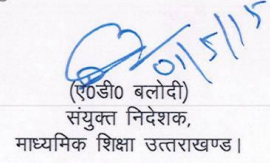 01/5/15
(ए0डी0 बलोदी)
संयुक्त निदेशक,
माध्यमिक शिक्षा उत्तराखण्ड।